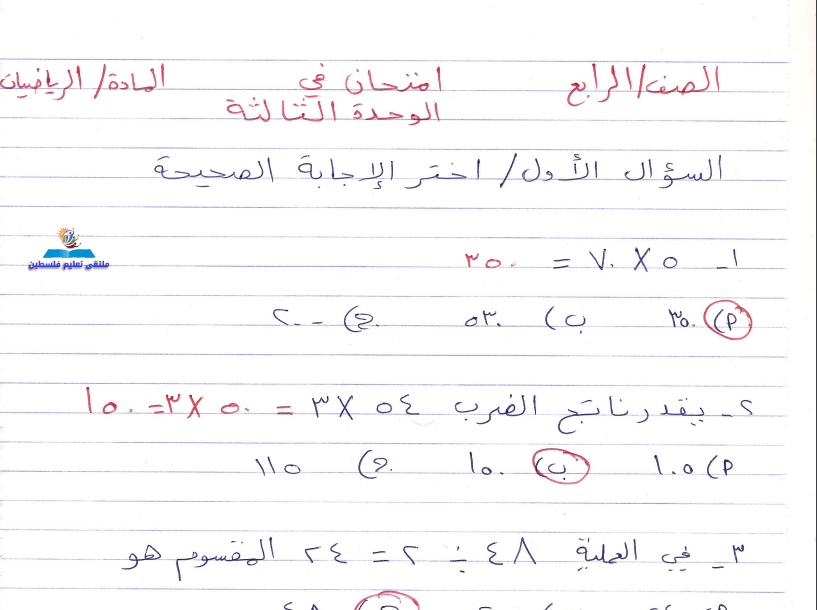 الصف/الرابع امتحان في المادة/ الرياضيات
الوحدة الثالثة
السؤال الأول/ اختر الإجابة الصحيحة
ملتقى تعليم فلسطين
١- ٥ X ٧٠ = ٣٥٠
أ) ٣٥٠ ب) ٥٣٠ ج) ٢٠٠
٢- يقدر ناتج الضرب ٥٤ X ٣ = ٥٠ X ٣ = ١٥٠
أ) ١٠٥ ب) ١٥٠ ج) ١١٥
٣- في العملية ٤٨ ÷ ٢ = ٢٤ المقسوم هو